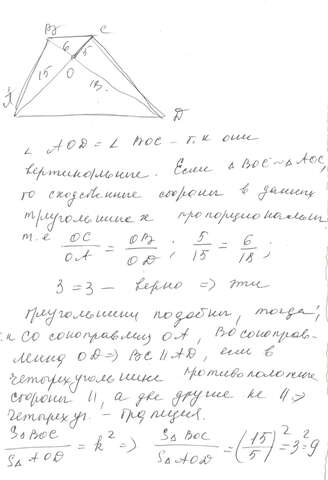 B C
6 5
15 O 18
A D
∠ AOD = ∠ BOC – т.к они
вертикальные. Если △ BOC ~ △ AOD,
то сходственные стороны в данных
треугольниках пропорциональны
т.е OC/OA = OB/OD ; 5/15 = 6/18 ;
3 = 3 – верно => эти
треугольники подобны, тогда;
т.к CO сонаправлена OA, BO сонаправ-
лена OD => BC || AD, если в
четырехугольнике противоположные
стороны ||, а две другие не || =>
четырехуг. – трапеция.
S△BOC/S△AOD = k² => S△BOC/S△AOD = (15/5)² = 3² = 9